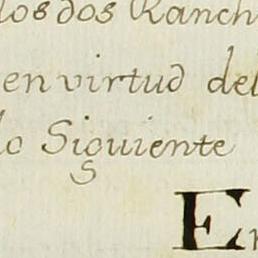 los dos Ranch
en virtud del
lo Siguiente
En